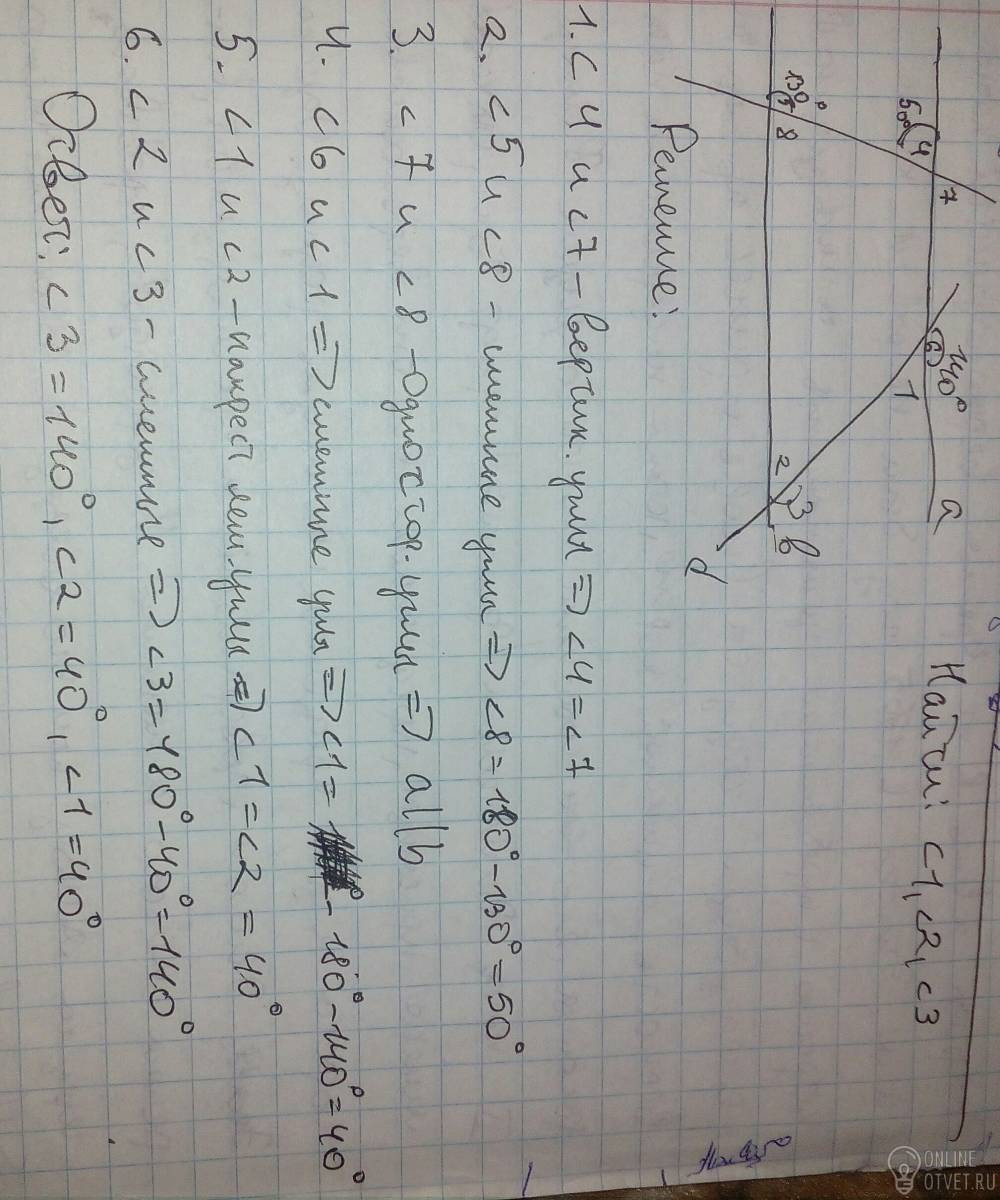 Найти: <1, <2, <3
50° 4 7 6 140° 1 а
130° 5 8 2 3 b
d
Решение:
1. <4 и <7 – вертик. углы => <4 = <7
2. <5 и <8 – смежные углы => <8 = 180° – 130° = 50°
3. <7 и <8 – одностор. углы => a||b
4. <6 и <1 => смежные углы => <1 = – 180° – 140° = 40°
5. <1 и <2 – накрест леш. углы => <1 = <2 = 40°
6. <2 и <3 – смежные => <3 = 180° – 40° = 140°
Ответ: <3 = 140°, <2 = 40°, <1 = 40°
ONLINE
OTVET.RU